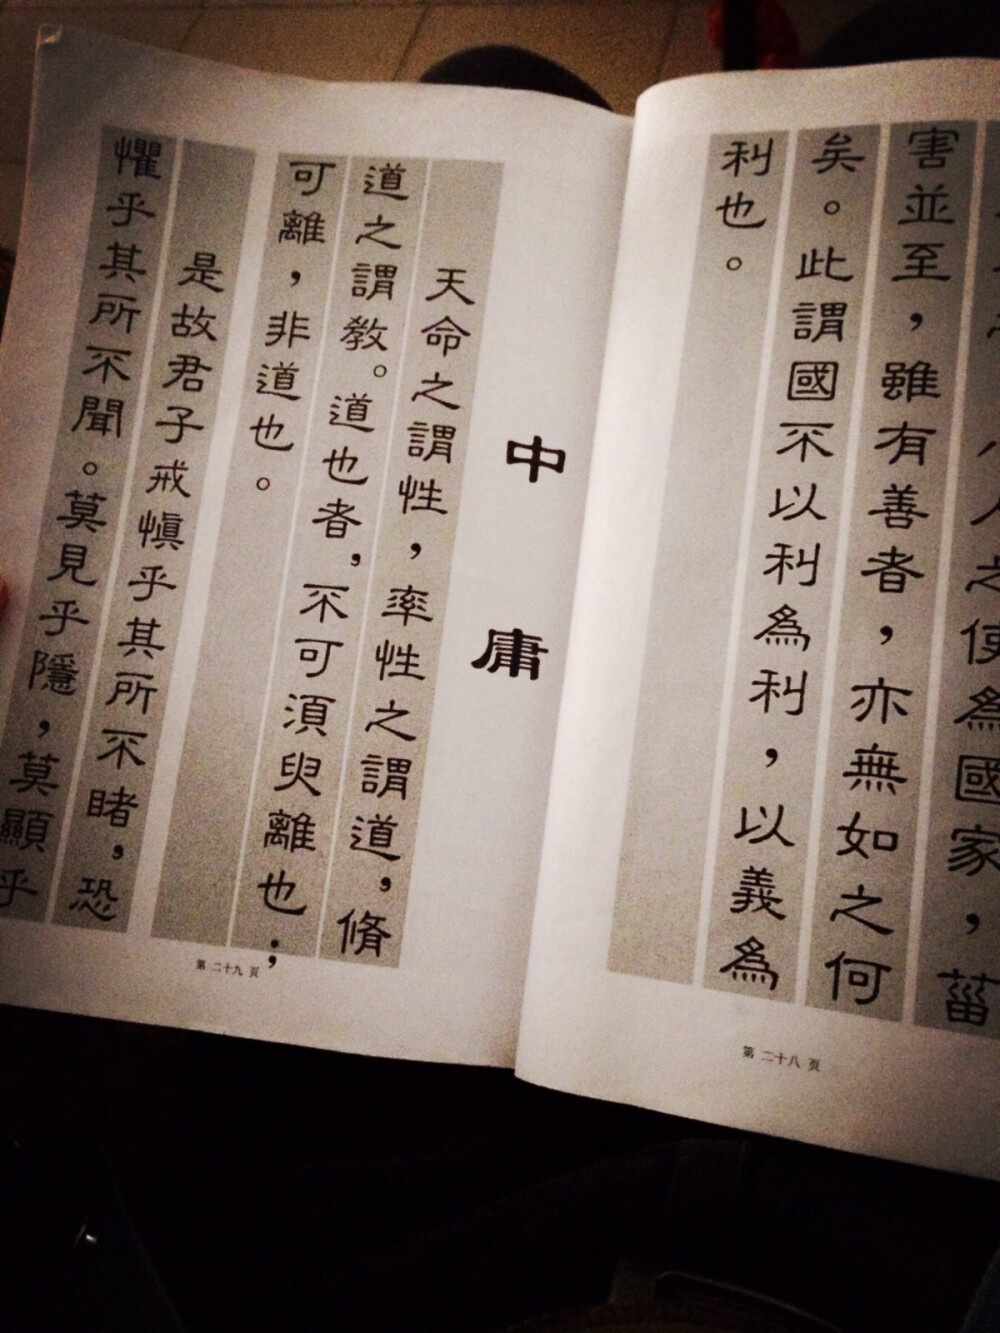 人之使爲國家，菑
害並至，雖有善者，亦無如之何
矣。此謂國不以利爲利，以義爲
利也。
第 二十八 頁
中庸
天命之謂性，率性之謂道，脩
道之謂教。道也者，不可須臾離也；
可離，非道也。
是故君子戒慎乎其所不睹，恐
懼乎其所不聞。莫見乎隱，莫顯乎
第 二十九 頁